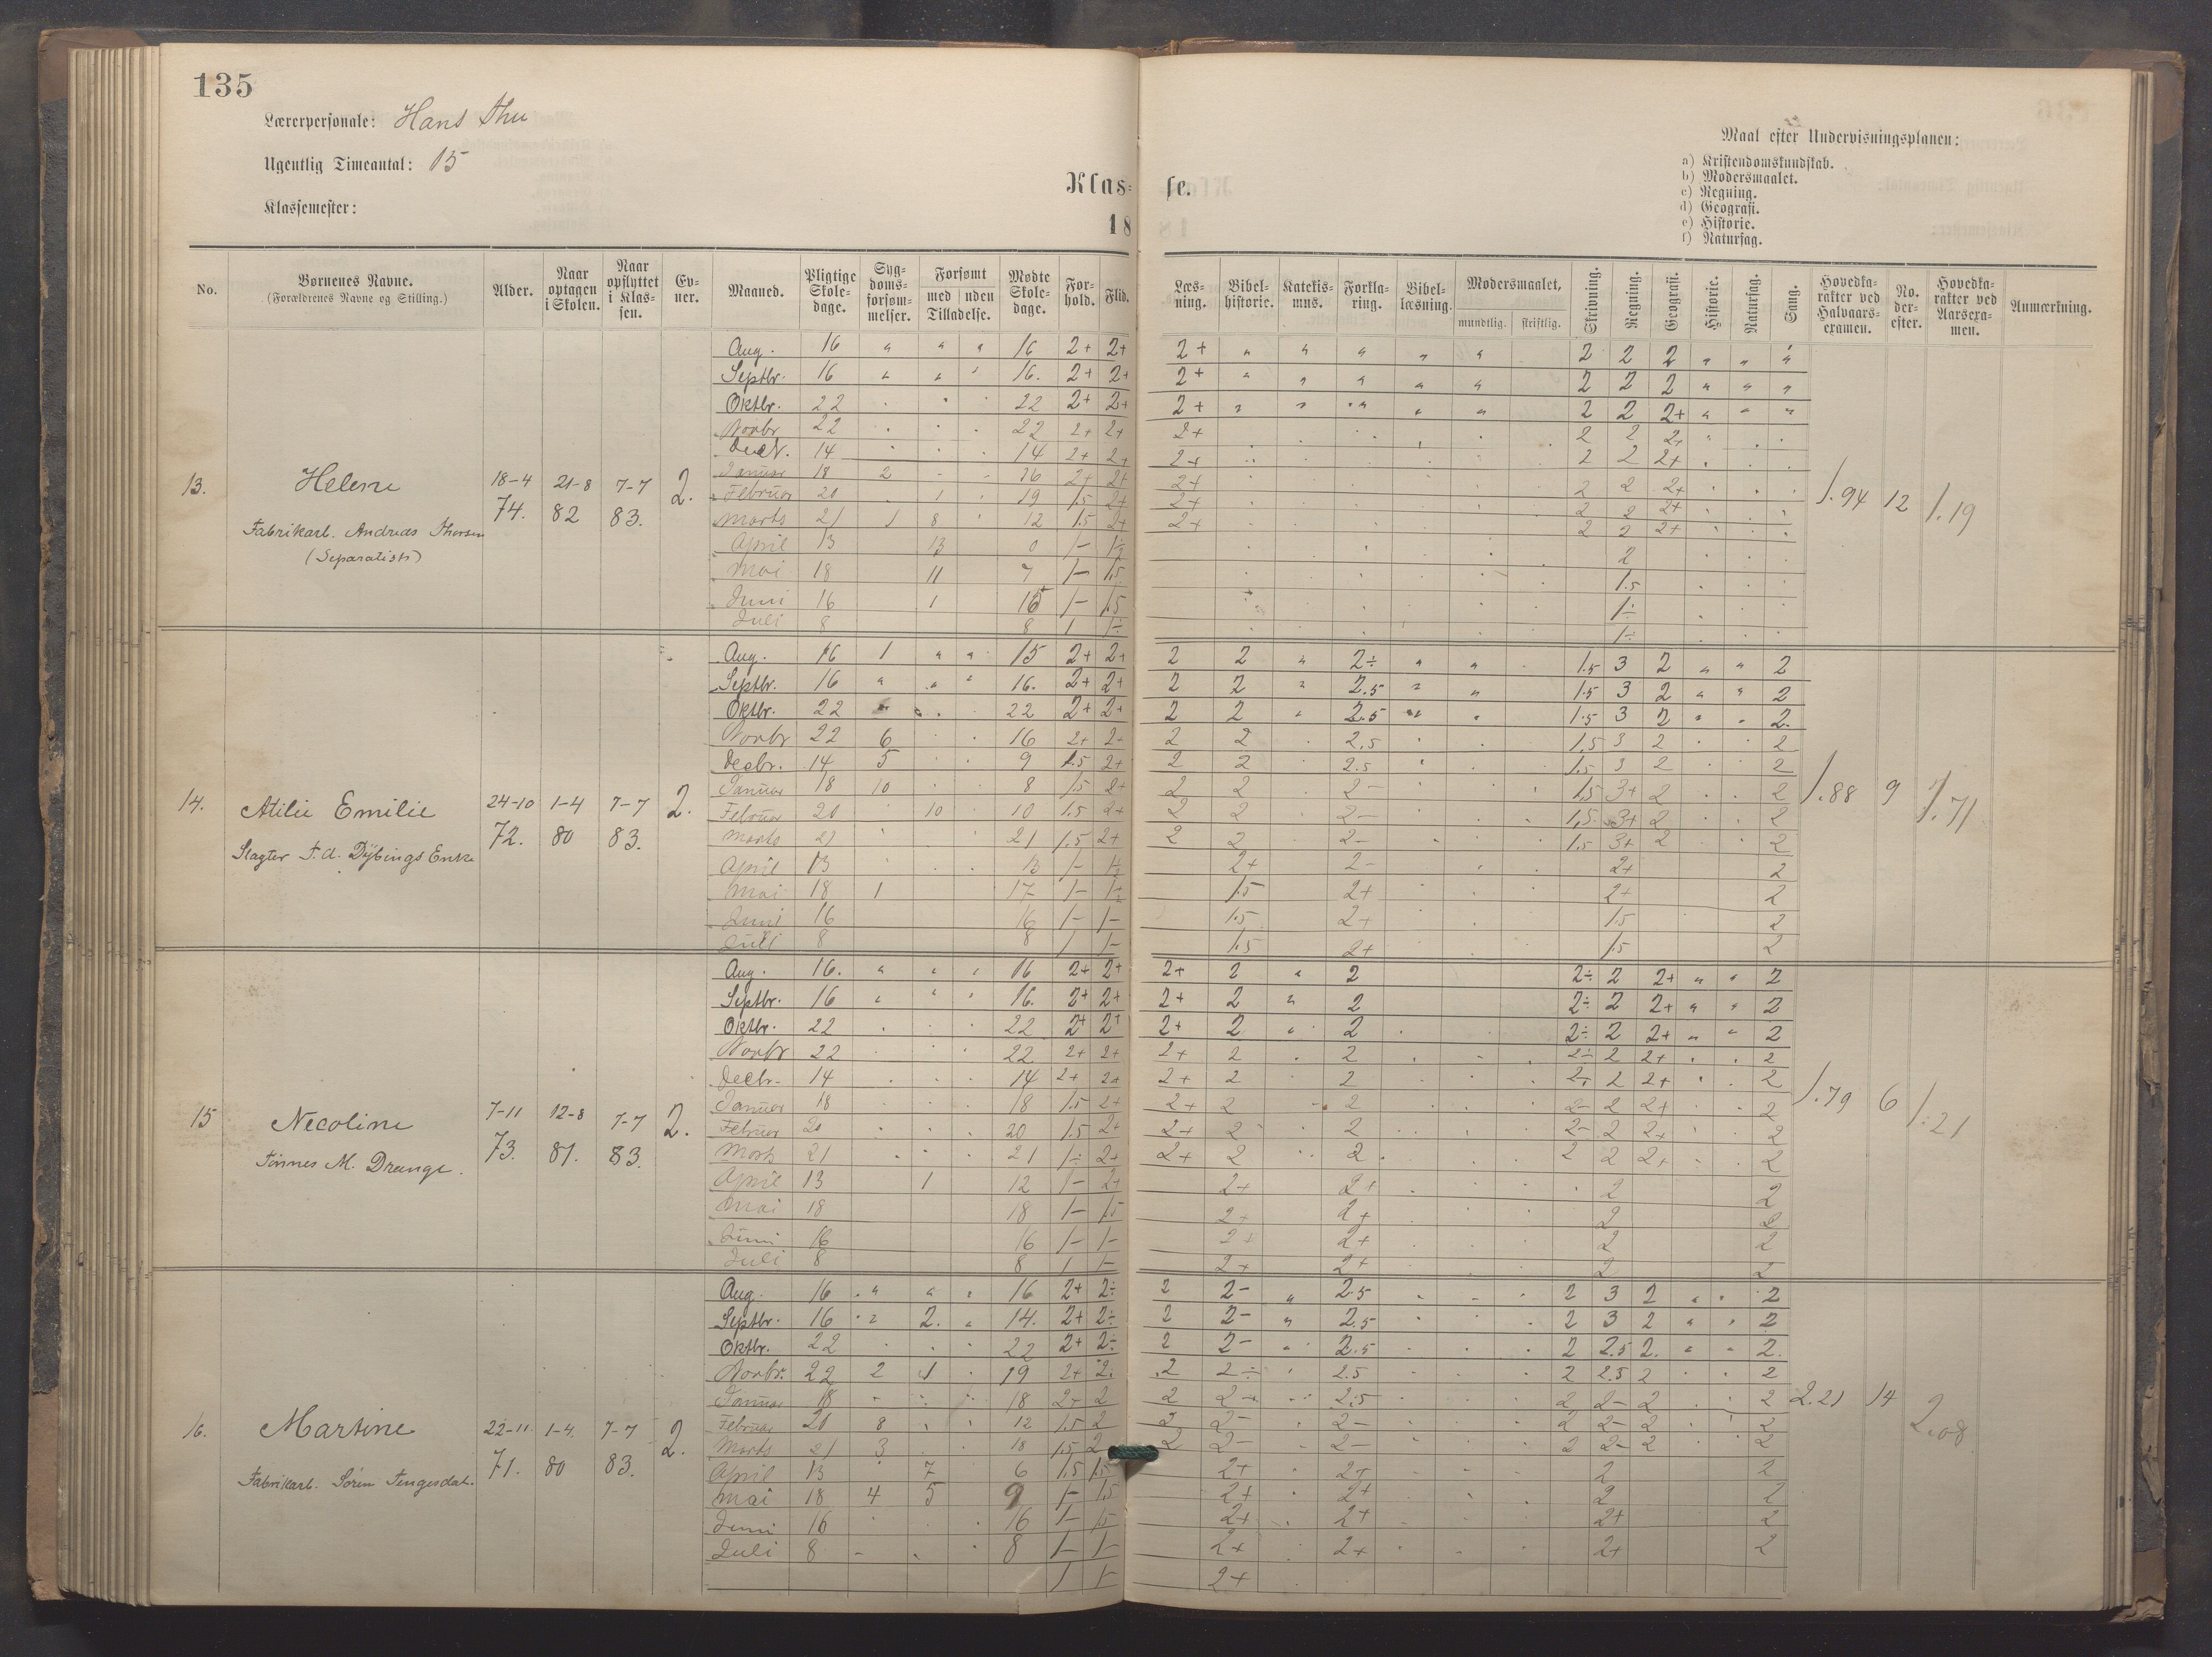 135
Lærerpersonale: Hans Thu
Ugentlig Timeantal: 15
Klassemester:
Klas=
se.
18
Maal efter Undervisningsplanen:
a) Kristendomskundskab.
b) Modersmaalet.
c) Regning.
d) Geografi.
e) Historie.
f) Naturfag.
No. Børnenes Navne. (Forældrenes Navne og Stilling.) Alder. Naar optagen i Skolen. Naar opflyttet i Klassen. Evner. Maaned. Pligtige Skoledage. Sygdomsforsømmelser. Forsømt med uden Tilladelse. Mødte Skoledage. Forhold. Flid. Læsning. Bibelhistorie. Katekismus. Forklaring. Bibellæsning. Modersmaalet, mundtlig. skriftlig. Skrivning. Regning. Geografi. Historie. Naturfag. Sang. Hovedkarakter ved Halvaarsexamen. No. derefter. Hovedkarakter ved Aarsexamen. Anmærkning.
Aug. 16 " " " 16 2+ 2+ 2+ " " " " " 2 2 2 " " "
Septbr. 16 " " " 16. 2+ 2+ 2+ " " " " " 2 2 2 " " "
Oktbr. 22 22 2+ 2+ 2+ " " " " " 2 2 2+ " " "
Novbr 22 22 2+ 2+ 2+ 2 2 2+
Decbr. 14 14 2+ 2+ 2+ 2 2 2+
Januar 18 2 16 2+ 2+ 2+ 2 2 2+
Februar 20 1 19 1.5 2+ 2+ 2 2 2+
Marts 21 1 8 12 1.5 2+ 2+ 2 2 2+
April 13 13 0 1- 1÷ 2
Mai 18 11 7 1- 1.5 1.5
Juni 16 1 15 1- 1.5 1÷
Juli 8 8 1 1÷ 1÷
13. Helene 18-4 74. 21-8 82 7-7 83. 2. 1.94 12 1.19
Fabrikarb. Andreas Thorsen
(Separatist)
Aug. 16 1 " " 15 2+ 2+ 2 2 " 2÷ " " 1.5 3 2 " " 2
Septbr. 16 " " " 16. 2+ 2+ 2 2 " 2.5 " " 1.5 3 2 " " 2
Oktbr. 22 22 2+ 2+ 2 2 " 2.5 " " 1.5 3 2 " " 2.
Novbr 22 6 16 2+ 2+ 2 2 2.5 1.5 3 2 2
Decbr. 14 5 9 1.5 2+ 2 2 2.5 1.5 3 2 2
Januar 18 10 8 1.5 2+ 2 2 2- 1.5 3+ 2 2
Februar 20 10 10 1.5 2+ 2 2 2- 1.5 3+ 2 2
Marts 21 21 1.5 2+ 2 2 2- 1.5 3+ 2 2
April 13 13 1- 1÷ 2+ 2- 2+ 2
Mai 18 1 17 1- 1÷ 1.5 2+ 2+ 2
Juni 16 16 1- 1- 1.5 2+ 1.5 2
Juli 8 8 1 1- 1.5 2+ 1.5 2
14. Atilie Emilie 24-10 72. 1-4 80 7-7 83. 2. 1.88 9 1.71
Slagter T. A. Dybings Enke
Aug. 16. " " " 16 2+ 2+ 2+ 2 " 2 2÷ 2 2+ " " 2
Septbr. 16 " " " 16. 2+ 2+ 2+ 2 " 2 2÷ 2 2+ " " 2
Oktbr. 22 22 2+ 2+ 2+ 2 " 2 2÷ 2 2+ " " 2
Novbr 22 22 2+ 2+ 2+ 2 2 2÷ 2 2+ 2
Decbr. 14 14 2+ 2+ 2+ 2 2 2÷ 2 2+ 2
Januar 18 18 1.5 2+ 2+ 2 2 2- 2 2+ 2
Februar 20 20 1.5 2+ 2+ 2 2 2- 2 2+ 2
Marts 21 21 1÷ 2+ 2+ 2 2 2 2 2+ 2
April 13 1 12 1- 2+ 2+ 2+ 2 2
Mai 18 18 1- 1.5 2+ 2+ 2 2
Juni 16 16 1- 1- 2+ 2+ 2 2
Juli 8 8 1 1- 2+ 2+ 2 2
15 Necoline 7-11 73. 12-8 81. 7-7 83. 2. 1.79 6 1.21
Tønnes M. Drange.
Aug. 16 " " " 16 2+ 2÷ 2 2- " 2.5 2 3 2 " " 2
Septbr. 16 " 2. " 14. 2+ 2÷ 2 2- " 2.5 2 3 2 " " 2
Oktbr. 22 22 2+ 2÷ 2 2- " 2.5 2 2.5 2. " " 2.
Novbr. 22 2 1 19 2+ 2÷ 2 2÷ 2.5 2 2.5 2 2
Januar 18 18 2+ 2 2 2- 2.5 2 2- 2 2
Februar 20 8 12 1.5 2 2 2- 2- 2 2- 2 2
Marts 21 3 18 1.5 2 2 2- 2- 2 2- 2 2
April 13 7 6 1.5 1.5 2+ 2+ 2 2
Mai 18 4 5 9 1- 1.5 2+ 2+ 2 2
Juni 16 16 1- 1.5 2+ 2+ 2+ 2
Juli 8 8 1- 1- 2+ 2+ 2+ 2
1 1- 2+
16. Martine 22-11 71. 1-4. 80 7-7 83. 2. 2.21 14 2.08
Fabrikarb. Sören Tengesdal.